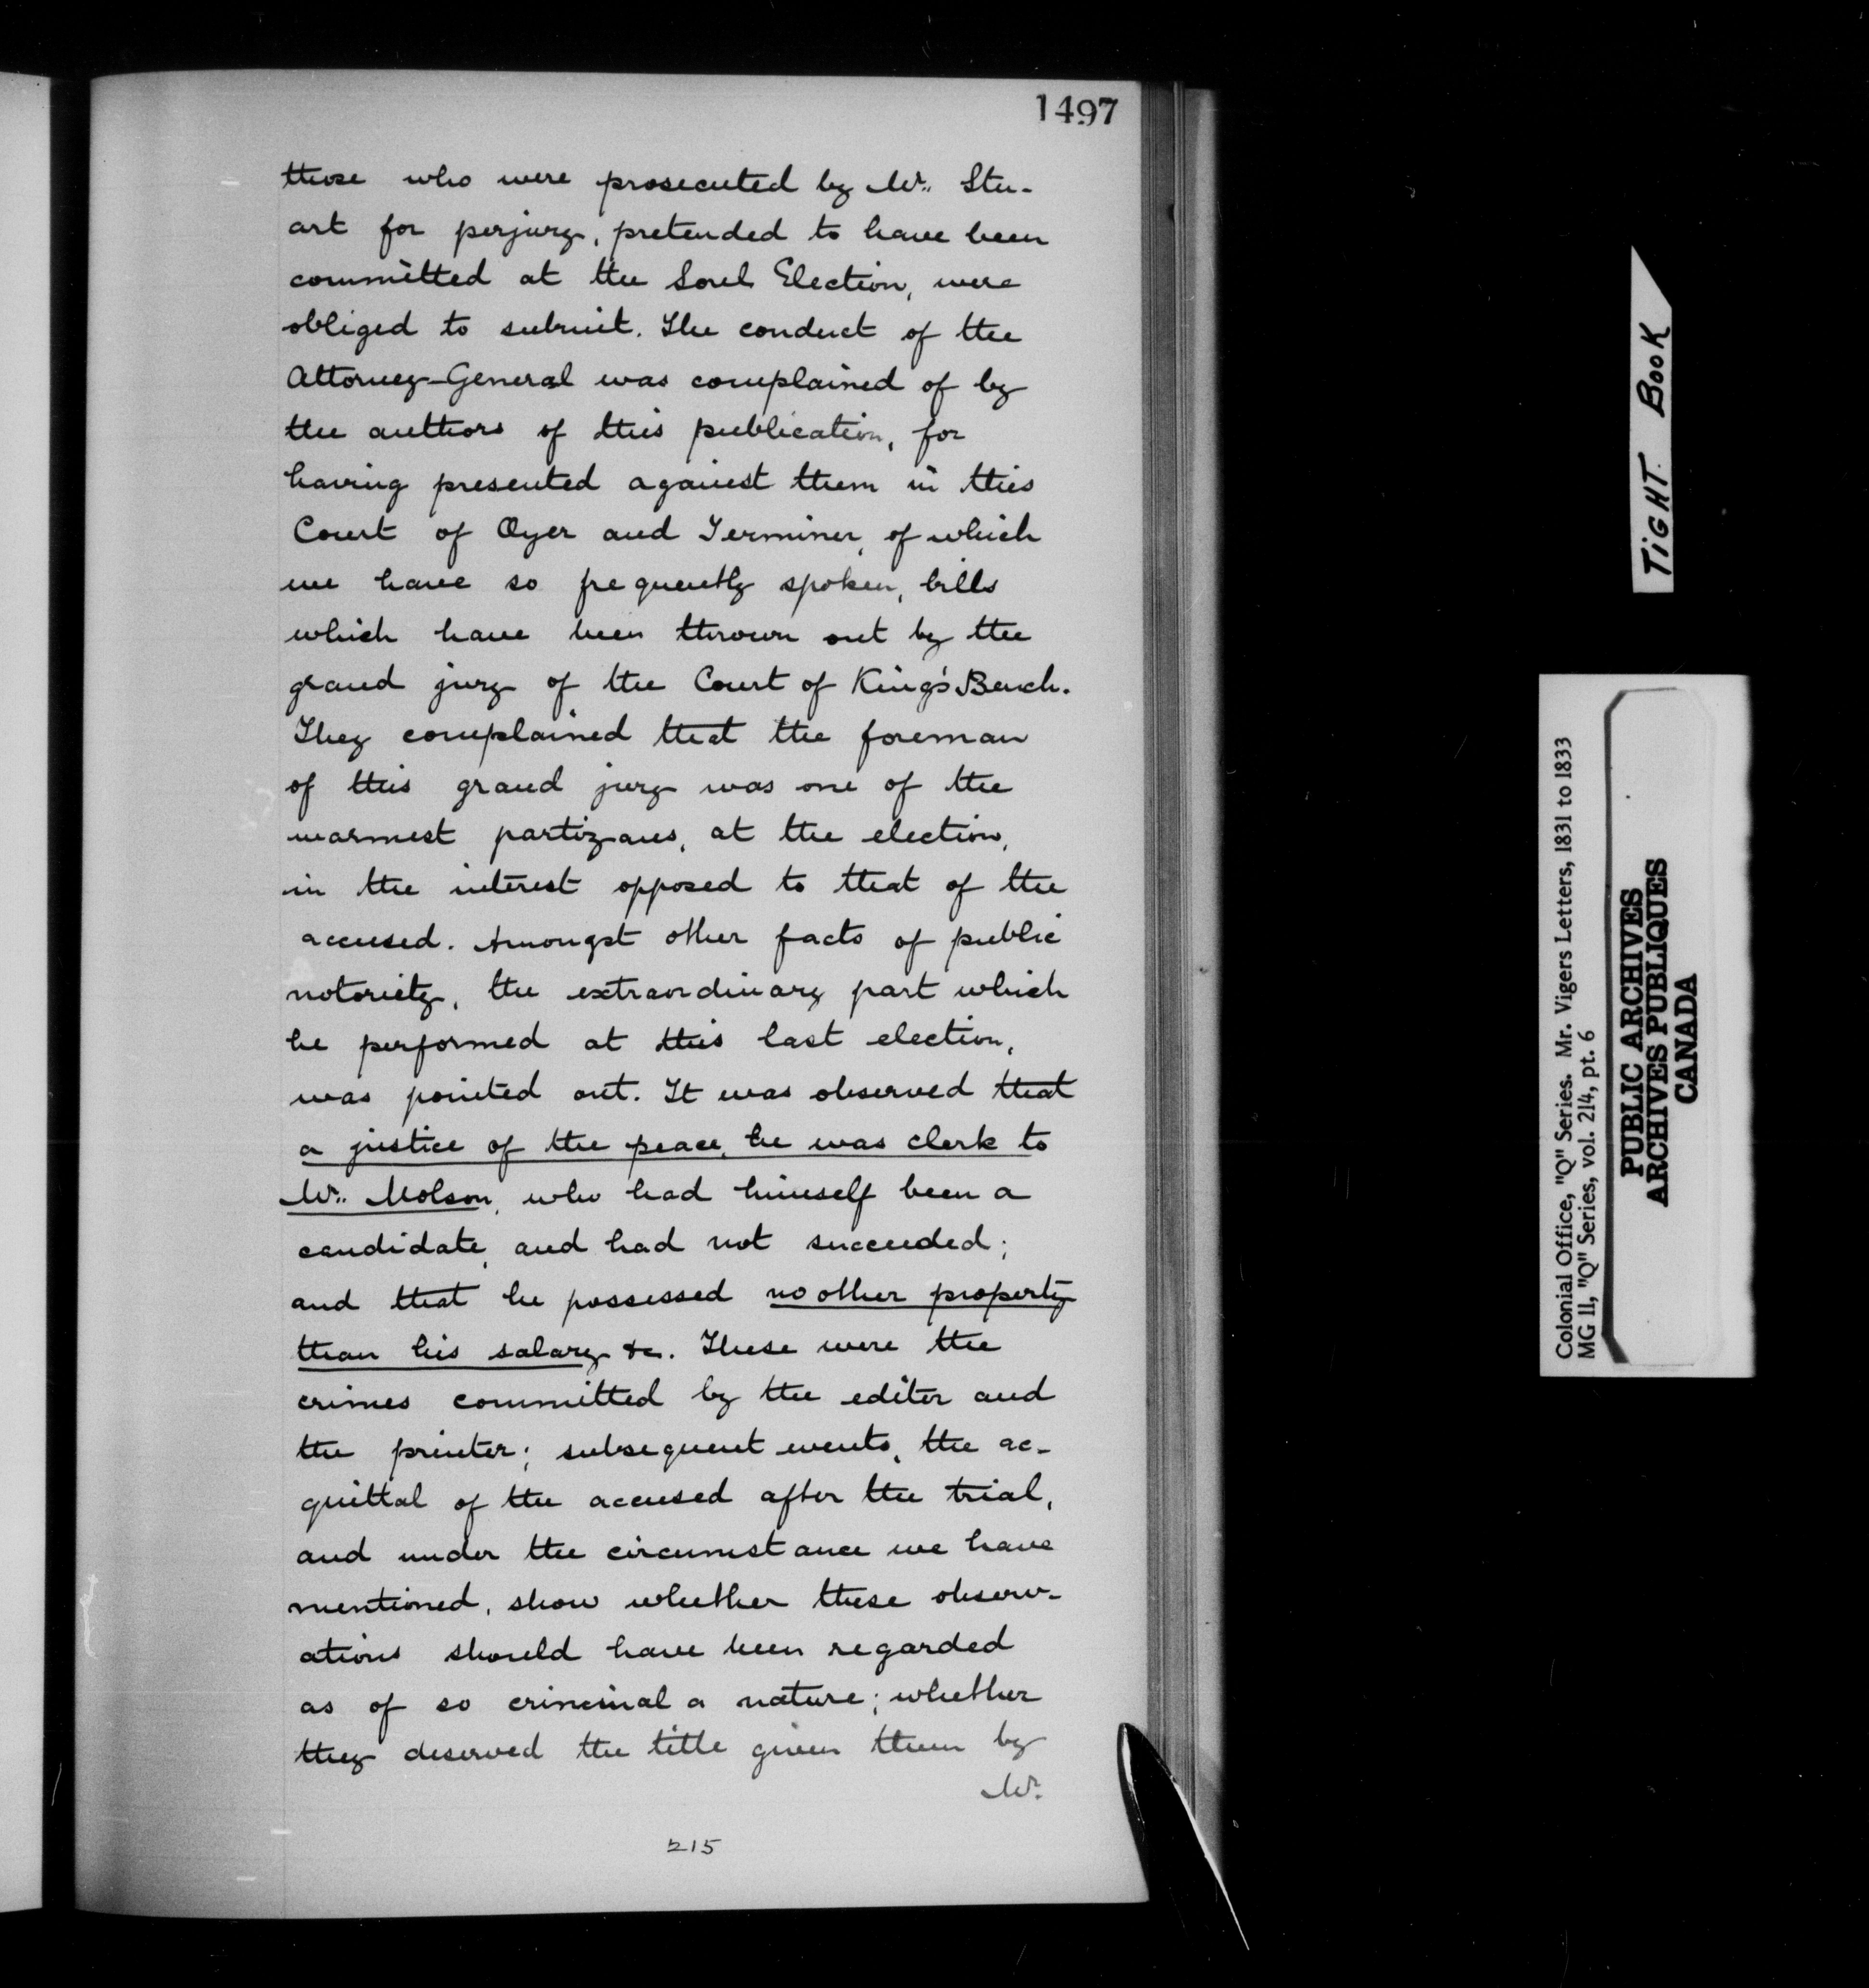 1497
those who were prosecuted by Mr. Stu-
art for perjury, pretended to have been
committed at the Sorel Election, were
obliged to submit. The conduct of the
Attorney-General was complained of by
the authors of this publication, for
having presented against them in this
Court of Oyer and Terminer, of which
we have so frequently spoken, bills
which have been thrown out by the
grand jury of the Court of King's Bench.
They complained that the foreman
of this grand jury was one of the
warmest partizans, at the election,
in the interest opposed to that of the
accused. Amongst other facts of public
notoriety, the extraordinary part which
he performed at this last election,
was pointed out. It was observed that
a justice of the peace, he was clerk to
Mr. Molson, who had himself been a
candidate, and had not succeeded;
and that he possessed no other property
than his salary &c. These were the
crimes committed by the editor and
the printer; subsequent events, the ac-
quittal of the accused after the trial,
and under the circumstance we have
mentioned, show whether these observ-
ations should have been regarded
as of so criminal a nature; whether
they deserved the title given them by
Mr.
215
TIGHT BOOK
Colonial Office, "Q" Series. Mr. Vigers Letters, 1831 to 1833
MG 11, "Q" Series, vol. 214, pt. 6
PUBLIC ARCHIVES
ARCHIVES PUBLIQUES
CANADA